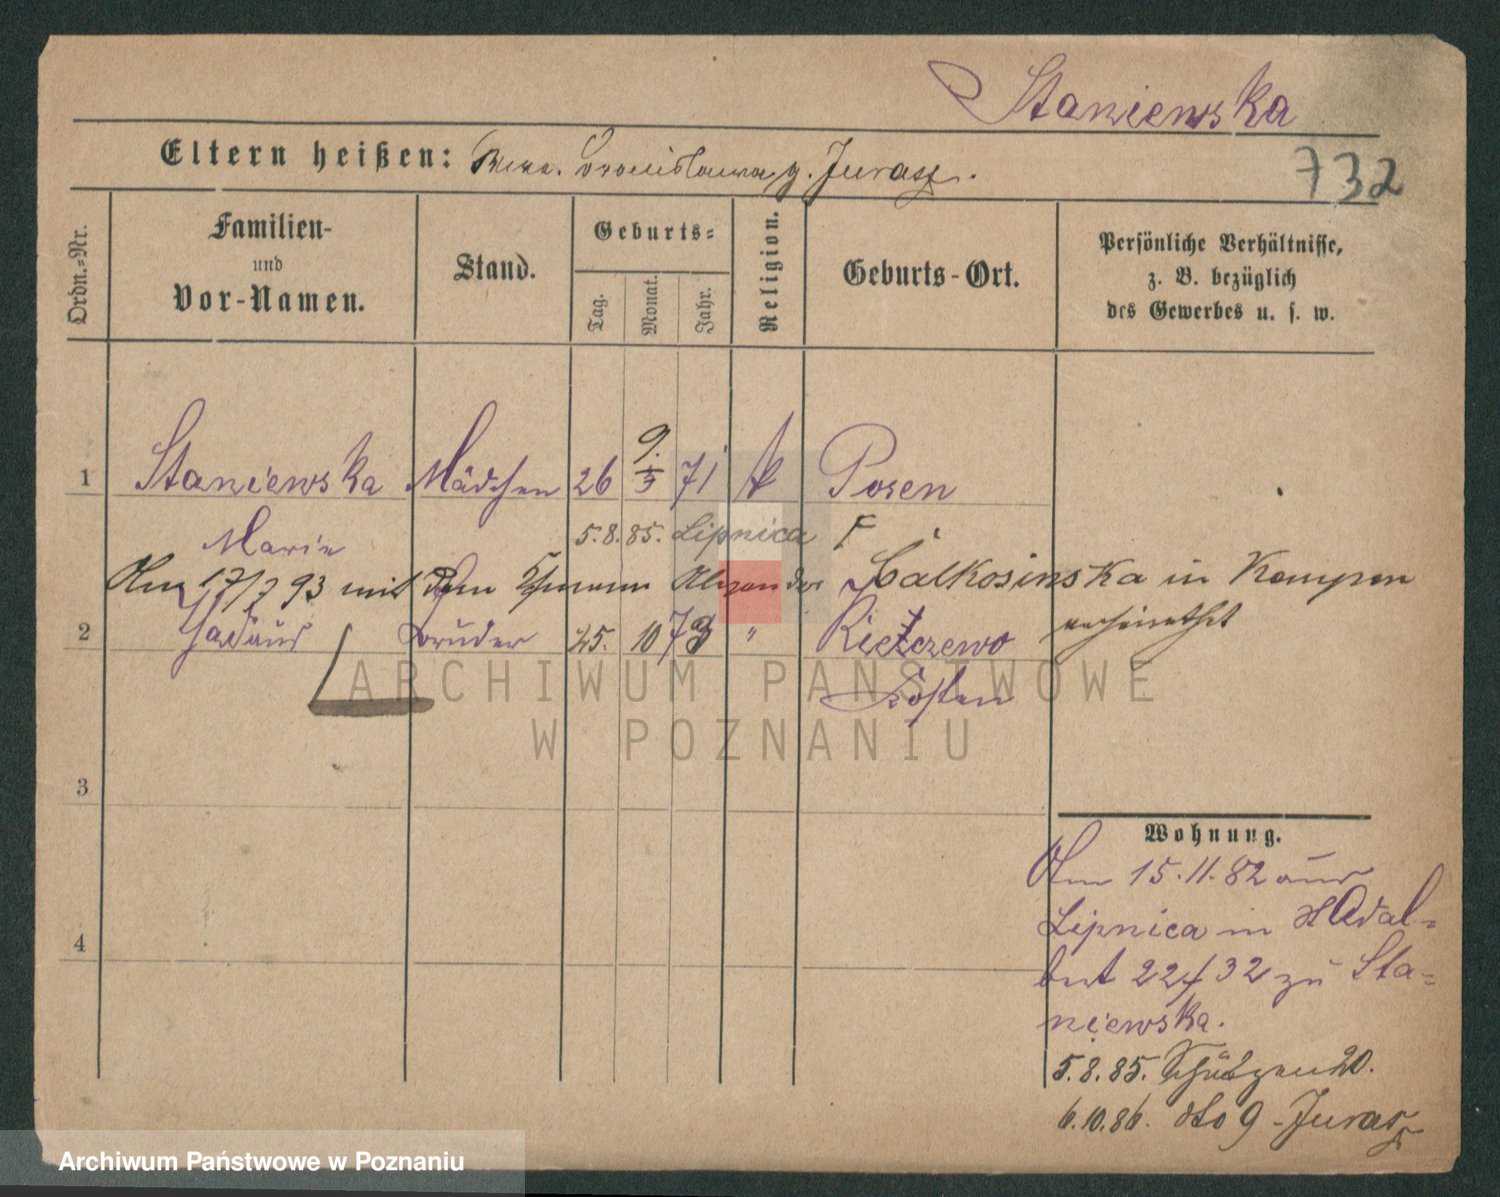 Staniewska
Eltern heißen: Bronislawa g. Jurasz.
732
Ordn.-Nr.
Familien-
und
Vor-Namen.
Stand.
Geburts-
Tag.
Monat.
Jahr.
Religion.
Geburts-Ort.
Persönliche Verhältnisse,
z. B. bezüglich
des Gewerbes u. s. w.
9.
1 Staniewska Mädchen 26 5 71 k Posen
5.8.85. Lipnica F
Marie
Am 17/7 93 mit dem Alexander Calkosinska in Kempen
verheirathet
2 Tadäus Bruder 25. 10 73 " Kietczewo
Kosten
3
4
Wohnung.
Am 15.11.82 aus
Lipnica in St Adal-
bert 22/32 zu Sta-
niewska.
5.8.85. Schützen 20.
6.10.86. dto 9 - Jurasz
ARCHIWUM PAŃSTWOWE
W POZNANIU
Archiwum Państwowe w Poznaniu